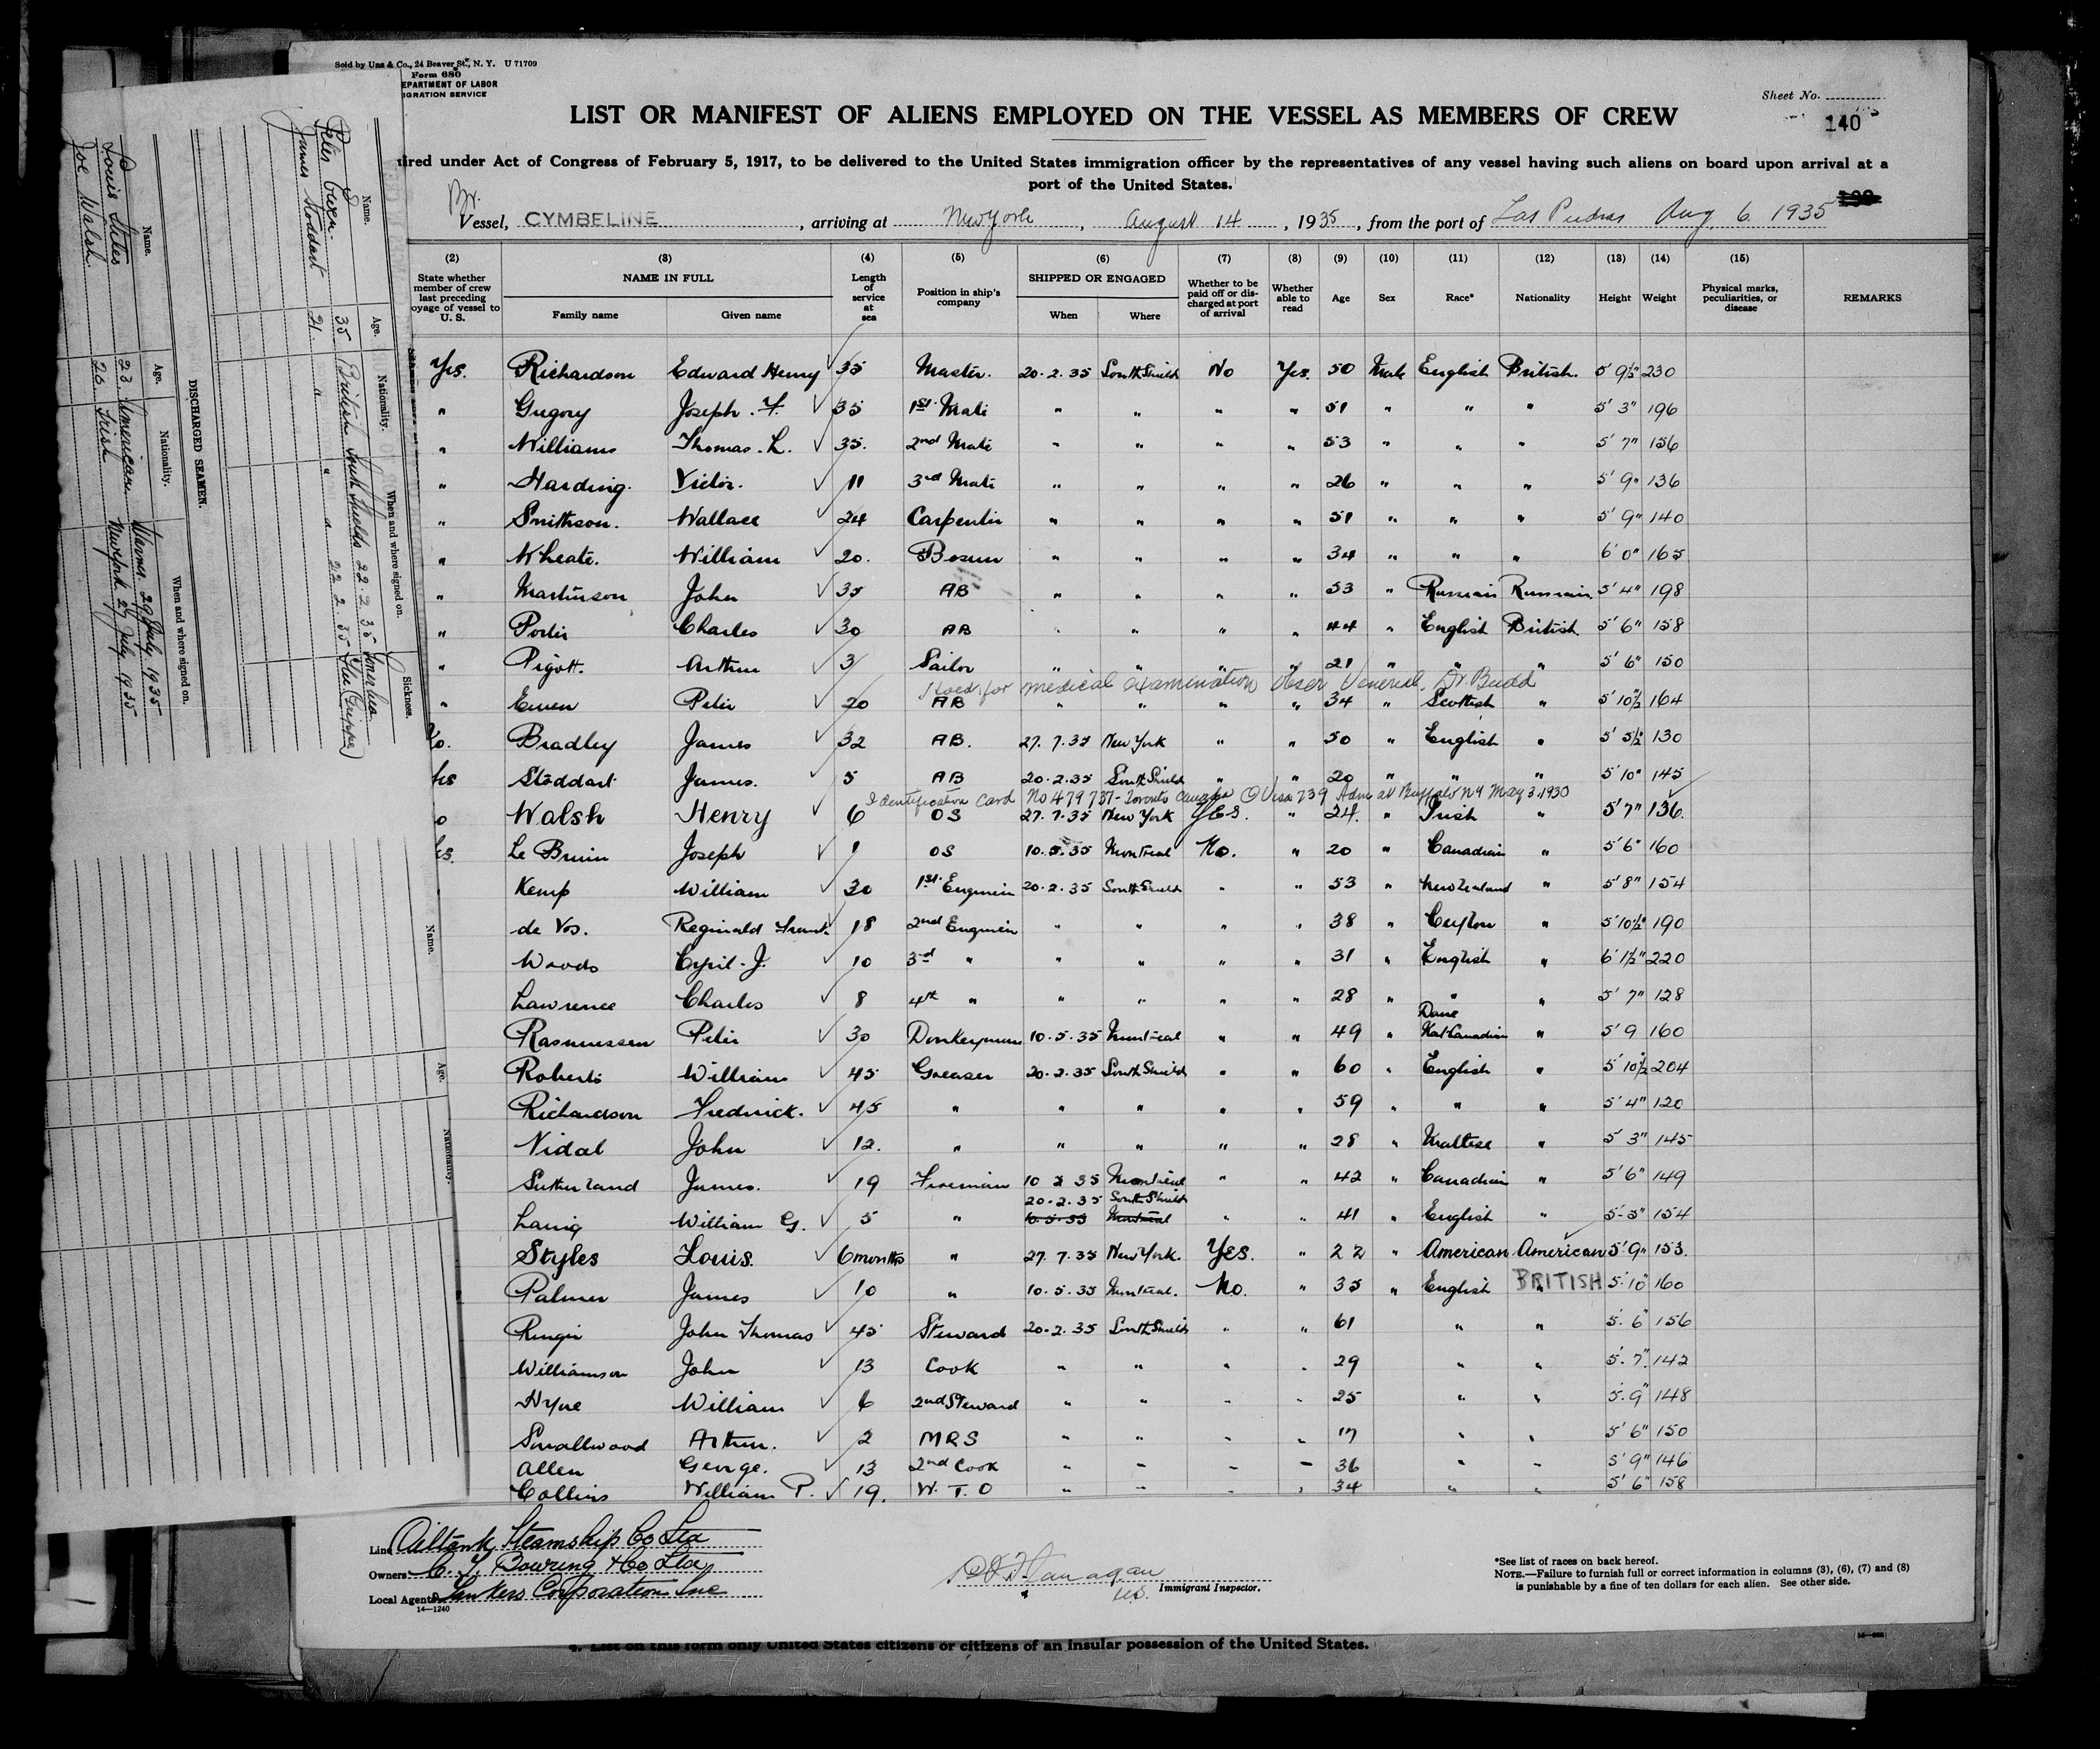 Sold by Unz & Co., 24 Beaver St., N. Y. U 71709
Form 680
EPARTMENT OF LABOR
IGRATION SERVICE
Sheet No.
140
LIST OR MANIFEST OF ALIENS EMPLOYED ON THE VESSEL AS MEMBERS OF CREW
ired under Act of Congress of February 5, 1917, to be delivered to the United States immigration officer by the representatives of any vessel having such aliens on board upon arrival at a
port of the United States.
Br.
Vessel, CYMBELINE, arriving at New York, August 14, 1935, from the port of Las Piedras Aug. 6. 1935
(2) (3) (4) (5) (6) (7) (8) (9) (10) (11) (12) (13) (14) (15)
State whether member of crew last preceding oyage of vessel to U. S. NAME IN FULL Family name Given name Length of service at sea Position in ship's company SHIPPED OR ENGAGED When Where Whether to be paid off or discharged at port of arrival Whether able to read Age Sex Race* Nationality Height Weight Physical marks, peculiarities, or disease REMARKS
Yes. Richardson Edward Henry 35 Master. 20.2.35 South Shields No Yes. 50 Male English British. 5' 9½" 230
" Gregory Joseph. F. 35 1st Mate " " " " 51 " " " 5' 3" 196
" Williams Thomas. L. 35. 2nd Mate " " " " 53 " " " 5' 7" 156
" Harding. Victor. 11 3rd Mate " " " " 26 " " " 5' 9" 136
" Smithson. Wallace 24 Carpenter " " " " 51 " " " 5' 9" 140
" Wheate. William 20. Bosun " " " " 34 " " " 6' 0" 165
" Martinson John 35 AB " " " " 53 " Russian Russian 5' 4" 198
" Porter Charles 30 AB " " " " 44 " English British 5' 6" 158
" Pigott. Arthur 3 Sailor " " " " 21 " " " 5' 6" 150
Hold for medical examination Obser Venereal. Dr. Budd
" Ewen Peter 20 AB " " " " 34 " Scottish " 5' 10½ 164
o. Bradley James 32 AB. 27.7.35 New York " " 50 " English " 5' 5½ 130
es Stoddart James. 5 AB 20.2.35 South Shields " " 20 " " " 5' 10" 145
Identification Card No 479737 - Toronto Canada Visa 739 Adm at Buffalo NY May 3. 1930
o Walsh Henry 6 OS 27.7.35 New York YES. " 24. " Irish " 5' 7" 136.
es. Le Bruin Joseph 1 OS 10.5.35 Montreal No. " 20 " Canadian " 5' 6" 160
Kemp William 30 1st Engineer 20.2.35 South Shields " " 53 " New Zealand " 5' 8" 154
de Vos. Reginald Frank 18 2nd Engineer " " " " 38 " Ceylon " 5' 10½ 190
Woods Cyril. J. 10 3rd " " " " " 31 " English " 6' 1½" 220
Lawrence Charles 8 4th " " " " " 28 " " " 5' 7" 128
Dane
Rasmussen Peter 30 Donkeyman 10.5.35 Montreal " " 49 " Nat Canadian " 5' 9 160
Roberts William 45 Greaser 20.2.35 South Shields " " 60 " English " 5' 10½ 204
Richardson Frederick. 45 " " " " " 59 " " " 5' 4" 120
Vidal John 12. " " " " " 28 " Maltese " 5' 3" 145
Sutherland James. 19 Fireman 10 2 35 Montreal " " 42 " Canadian " 5' 6" 149
20.2.35 South Shields
Laing William G. 5 " 10.5.35 Montreal " " 41 " English " 5' 5" 154
Styles Louis. 6 months " 27.7.35 New York. Yes. " 22 " American American 5' 9" 153.
Palmer James 10 " 10.5.35 Montreal. No. " 35 " English BRITISH 5' 10" 160
John Thomas 45 Steward 20.2.35 South Shields " " 61 " " 5' 6" 156
Williamson John 13 Cook " " " " 29 " " 5' 7" 142
William 6 2nd Steward " " " " 25 " " 5' 9" 148
Smallwood Arthur. 2 MRS " " " " 17 " " 5' 6" 150
Allen George. 13 2nd Cook " " " " 36 " " 5' 9" 146
Collins William P. 19. W. T. O " " " " 34 " " 5' 6" 158
Line Oiltank Steamship Co Ltd
Owners C. T. Bowring & Co Ltd
Local Agents Tankers Corporation Inc
14—1240
Flanagan
U.S. Immigrant Inspector.
*See list of races on back hereof.
NOTE.—Failure to furnish full or correct information in columns (3), (6), (7) and (8)
is punishable by a fine of ten dollars for each alien. See other side.
4. List on this form only United States citizens or citizens of an insular possession of the United States.
Name. Age. Nationality. When and where signed on. Sickness.
Peter Ewen. 35 British South Shields 22.2.35 Gonorrhea
James Stoddart 21. " " " 22.2.35 Flu (Grippe)
DISCHARGED SEAMEN.
Name. Age. Nationality. When and where signed on.
Louis Stiles 23. American Warner 29 July 1935
Joe Walsh. 26. Irish New York 27 July 1935
Name. Age. Nationality.